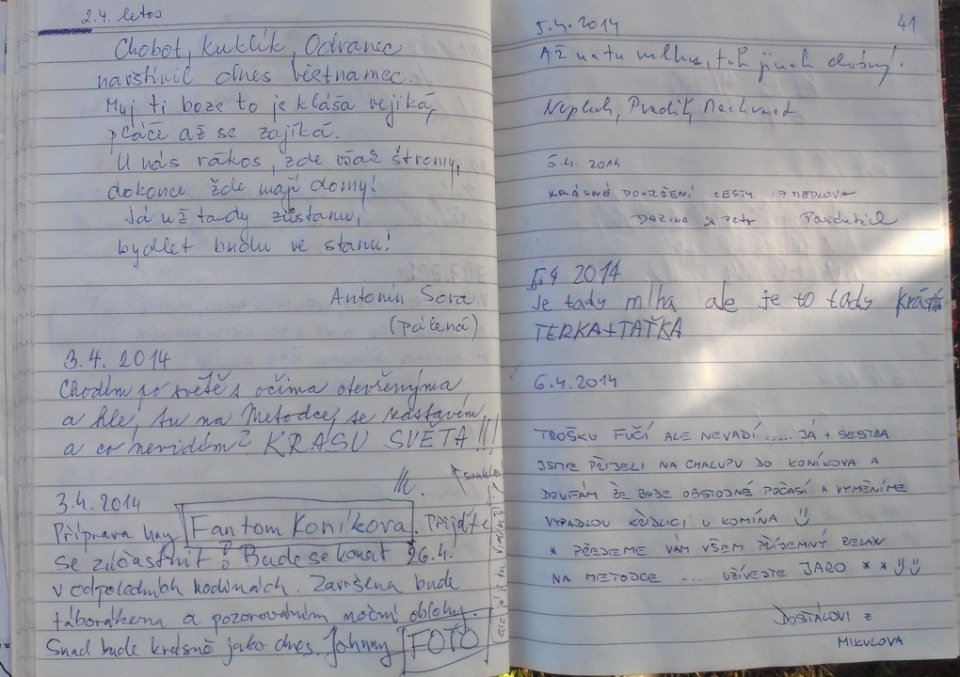 2.4. letos
Chobot, Kuklík, Odranec
navštívil dnes vietnamec.
Muj ti bože to je kláša vejiká,
pláče až se zajíká.
U nás rákos, zde však štromy,
dokonce žde mají domy!
Já už tady zůstanu,
bydlet budu ve stanu!
Antonín Sova
(pálená)
3.4. 2014
Chodím po světě s očima otevřenýma
a hle, tu na Metodce, se zastavím
a co nevidím? KRÁSU SVĚTA!!!
souhlas
3.4. 2014
Příprava hry Fantom Koníkova. Přijďte
se zúčastnit! Bude se konat 26.4.
v odpoledních hodinách. Završena bude
táborákem a pozorováním noční oblohy.
Snad bude krásně jako dnes. Johnny FOTO
41
5.4.2014
Až na tu mlhu,
5.4. 2014
KRÁSNÉ DOVRŠENÍ CESTY Z MEDLOVA
5.4 2014
Je tady mlha ale je to tady
TERKA+TAŤKA
6.4.2014
TROŠKU FUČÍ ALE NEVADÍ ..... JÁ + SESTRA
JSME PŘIJELI NA CHALUPU DO KONÍKOVA A
DOUFÁM ŽE BUDE OBSTOJNÉ POČASÍ A VYMĚNÍME
VYPADLOU KŘIDLICI U KOMÍNA
* PŘEJEME VÁM VŠEM PŘÍJEMNÝ RELAX
NA METODCE ... UŽÍVEJTE JARO * *
DOSTÁLOVI z
MIKULOVA